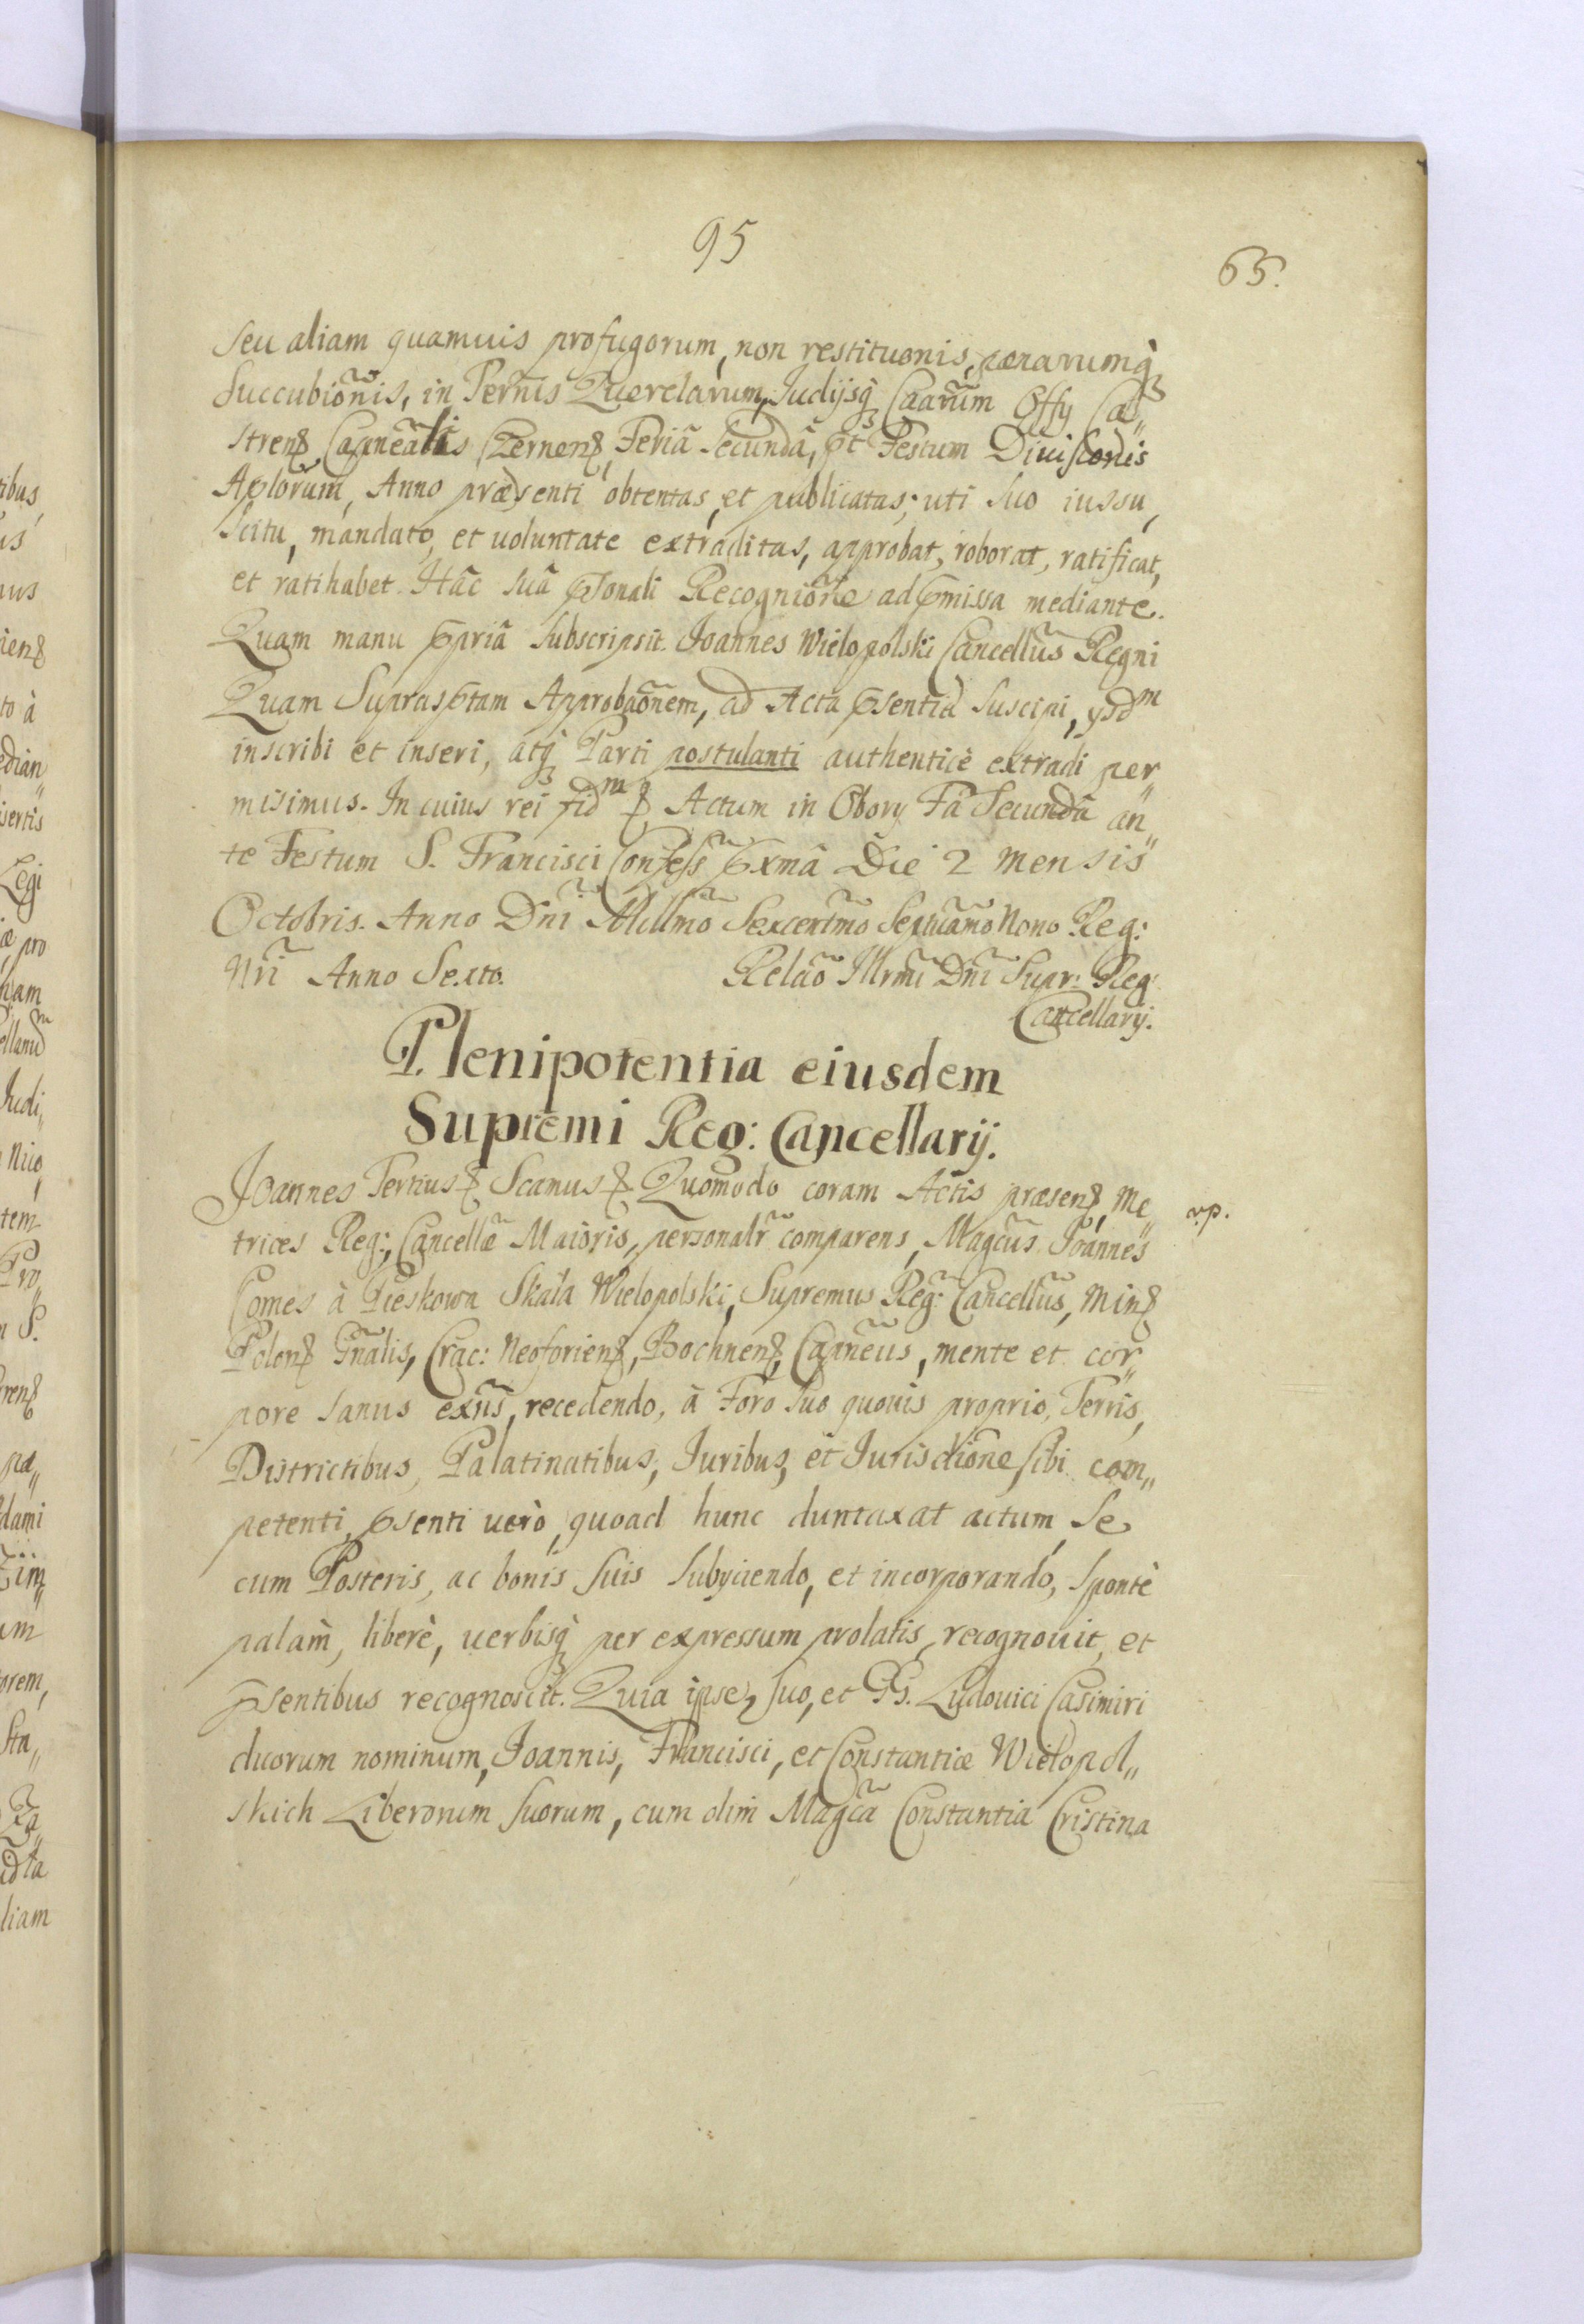 95
65.
seu aliam quamuis profugorum, non restituonis, pœnarumq̃
Succubiõnis, in Termis Querelarum, Iudijsq̃ Caarum Offy Ca„
strens Capnealis Czernens, Feriâ Secundâ, pt Festum Diuisionis
Aplorum, Anno præsenti obtentas, et publicatas; uti suo iussu,
scitu, mandato, et uoluntate extraditas, approbat, roborat, ratificat,
et ratihabet. Hâc suâ psonali Recogniõne ad pmissa mediante.
Quam manu ppriâ subscripsit. Joannes Wielopolski Cancellũs Regni
Quam Suprasptam Approbaõnem, ad Acta psentia suscipi, ysdm
inscribi et inseri, atq̃ Parti postulanti authenticè extradi per„
misimus. In cuius rei fidm & Actum in Obory Fã Secundâ an„
te Festum S. Francisci Confess pxmâ Die 2 mensis
Octobris. Anno Dñi Millmõ Sexcentmõ Septuamõ Nono Reg:
Nri Anno Sexto.
Relaõ Illrmi Dñi Supr: Reg:
Cancellarij.
Plenipotentia eiusdem
Supremi Reg: Cancellarij.
Joannes Tertius & Scamus & Quomodo coram Actis præsens, Me„
v.p.
trices Reg:, Cancellæ Maioris, personalr̃ comparens, Magcũs Joannes
Comes à Pieskowa Skała Wielopolski, Supremus Reg: Cancellũs, Mins
Polons Gñalis, Crac: Neoforiens, Bochnens, Capnẽus, mente et cor„
pore sanus exñs, recedendo, à Foro suo quouis proprio, Terris,
Districtibus, Palatinatibus, Iuribus, et Iurisdictione sibi com„
petenti, psenti uerò, quoad hunc duntaxat actum, Se
cum Posteris, ac bonis suis subyciendo, et incorporando, spontè
palàm, liberè, uerbisq̃ per expressum prolatis, recognouit, et
psentibus recognoscit. Quia ipse, suo, et GG. Ludouici Casimiri
duorum nominum, Joannis, Francisci, et Constantiæ Wielopol„
skich Liberorum suorum, cum olim Magcã Constantia Cristina